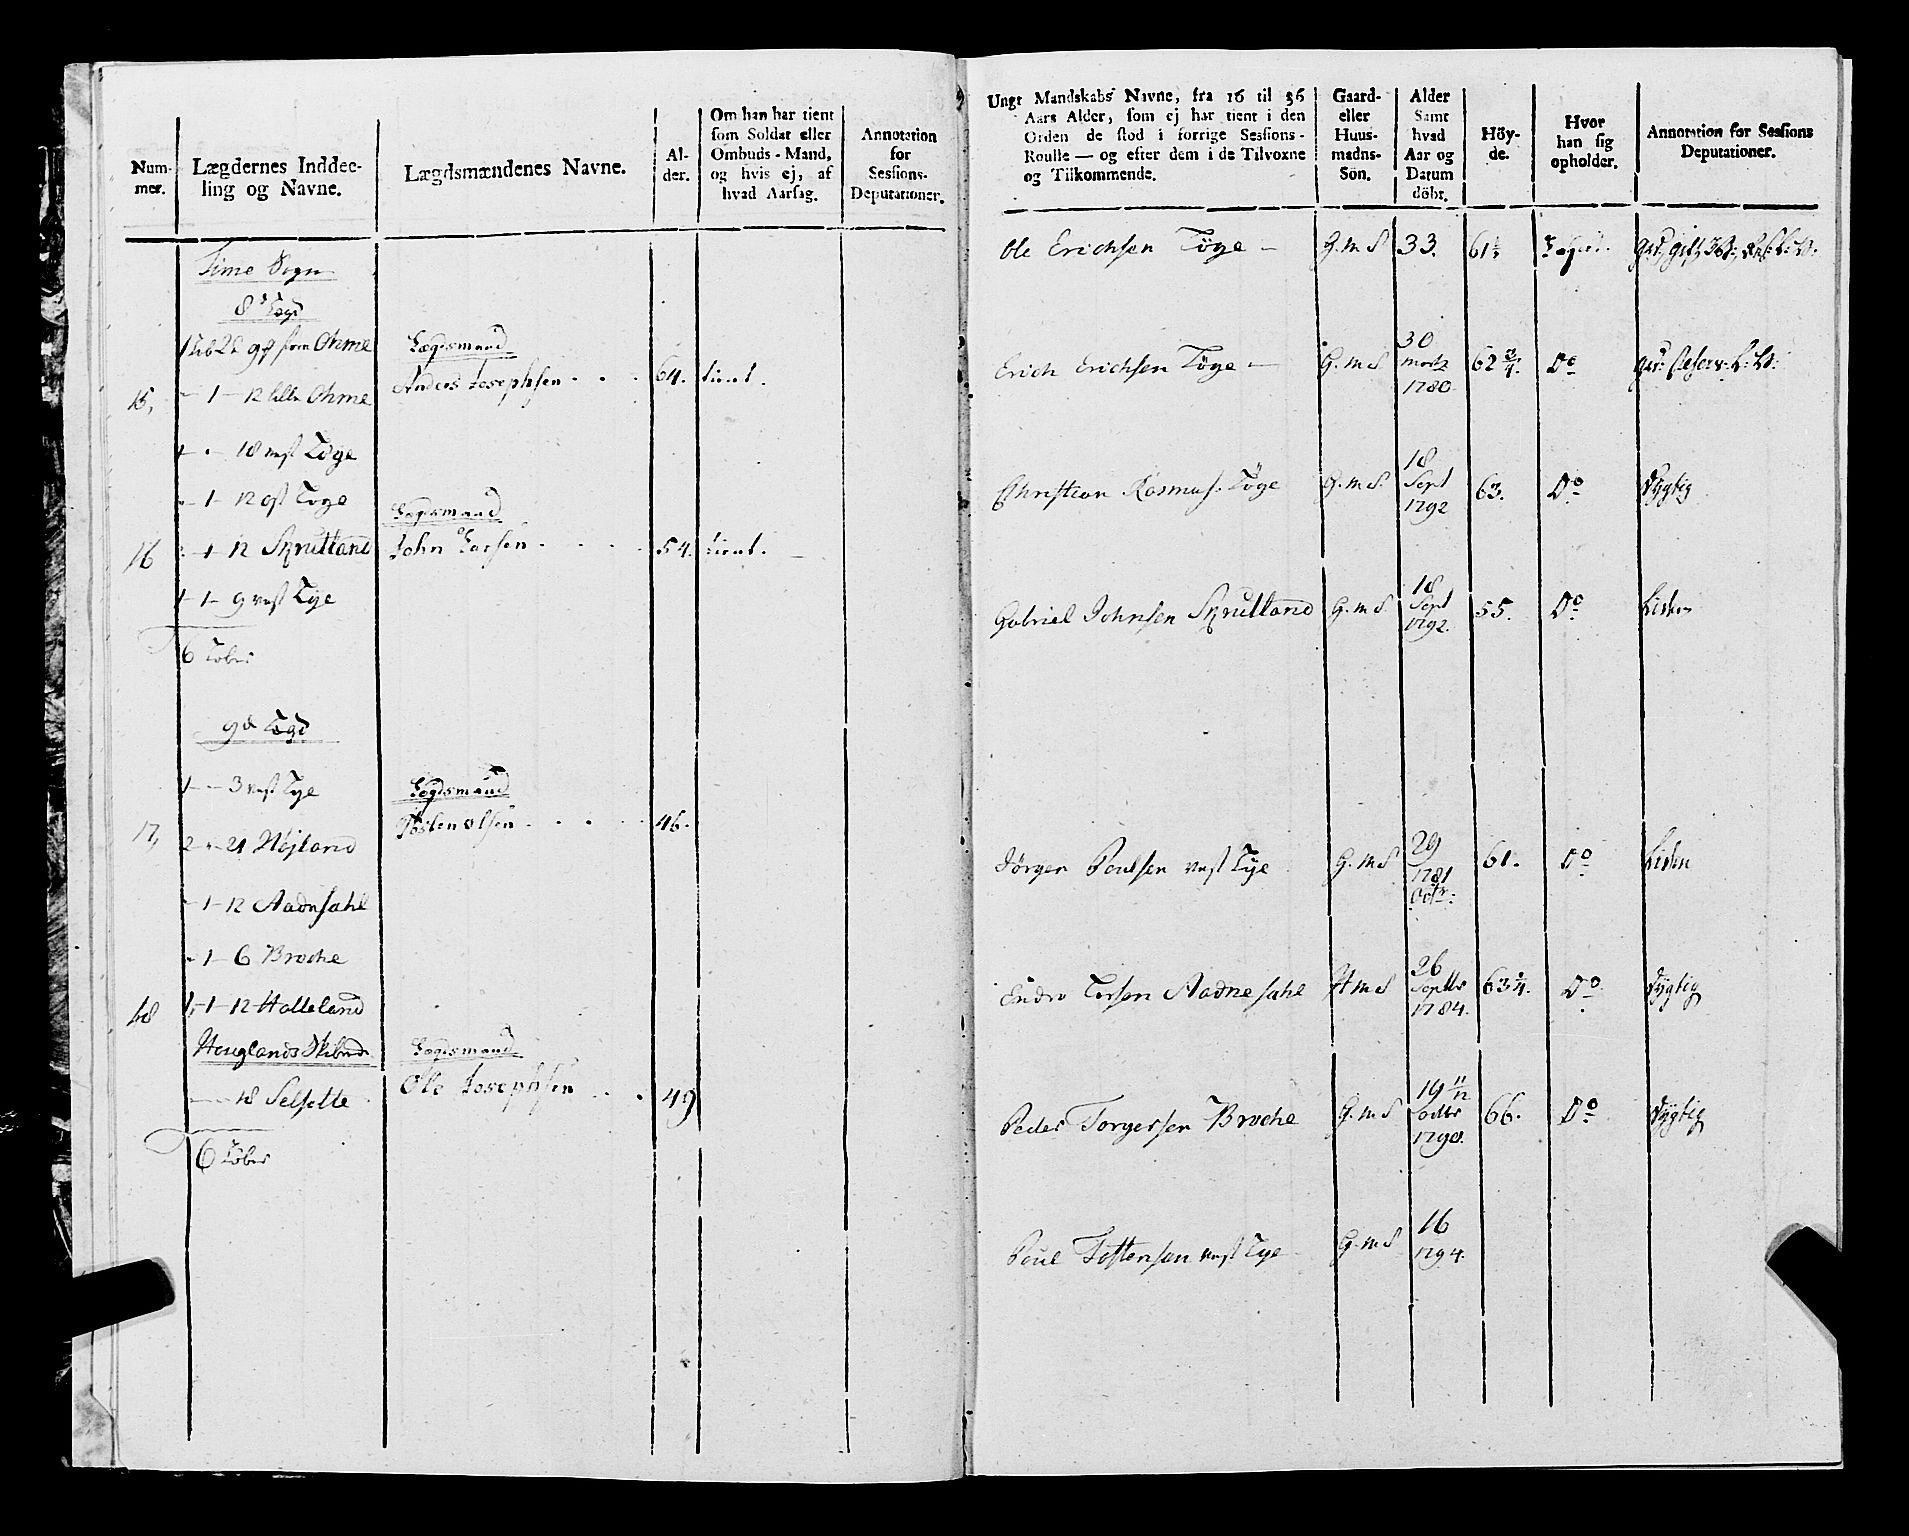 Num-
mer.
Lægdernes Inddee-
ling og Navne.
Lægdsmændenes Navne.
Al-
der.
Om han har tient
som Soldat eller
Ombuds-Mand,
og hvis ej, af
hvad Aarsag.
Annotation
for
Sessions-
Deputationer.
Time Sogn
8de Lægd
Ohme
Lægdsmand
15,
1 — 12 lille Ohme
Anders Josephsen
64.
tient.
18 vest Løge
1 — 12 ost Løge
Lægdsmand
16
1 — 12 Skrutland
John Larsen
54.
tient.
1 — 1 — 9 vest Lye
6 Lober
9de Lægd
1 — 3 vest Lye
Lægdsmand
17,
2 — 21 Højland
Tosten Olsen
46.
1 — 12 Aadnesahl
1 — 6 Broche
18
1 — 1 — 12 Halleland
Houglands Skibrede
Lægdsmand
18 Selsette
Ole Josephsen
49
6 Lober
Ungt Mandskabs Navne, fra 16 til 36
Aars Alder, som ej har tient i den
Orden de stod i forrige Sessions-
Roulle — og efter dem i de Tilvoxne
og Tilkommende.
Gaard-
eller
Huus-
mands-
Sön.
Alder
Samt
hvad
Aar og
Datum
döbt.
Höy-
de.
Hvor
han sig
opholder.
Annotation for Sessions
Deputationer.
Ole Erichsen Løge — G.m S 33.
Erich Erichsen Løge — G.m S
30
Martz
1780
62 3/4. Do
Christian Rasmus. Løge G.m S.
18
Sept
1792
63. Do Dygtig
Gabriel Johnsen Skrutland G.m S
18
Sept
1792.
55. Do Liden
Jørgen Poulsen vest Lye G.m S
29
1781
Octr:
61. Do Liden
Endre Larsen Aadnesahl H m S
26
Septbr
1784.
63 1/4. Do Dygtig
Peder Torgersen Broche G.m S
19 11/12
1790.
66. Do Dygtig
Poul Tostensen vest Lye G.m S
16
1794.